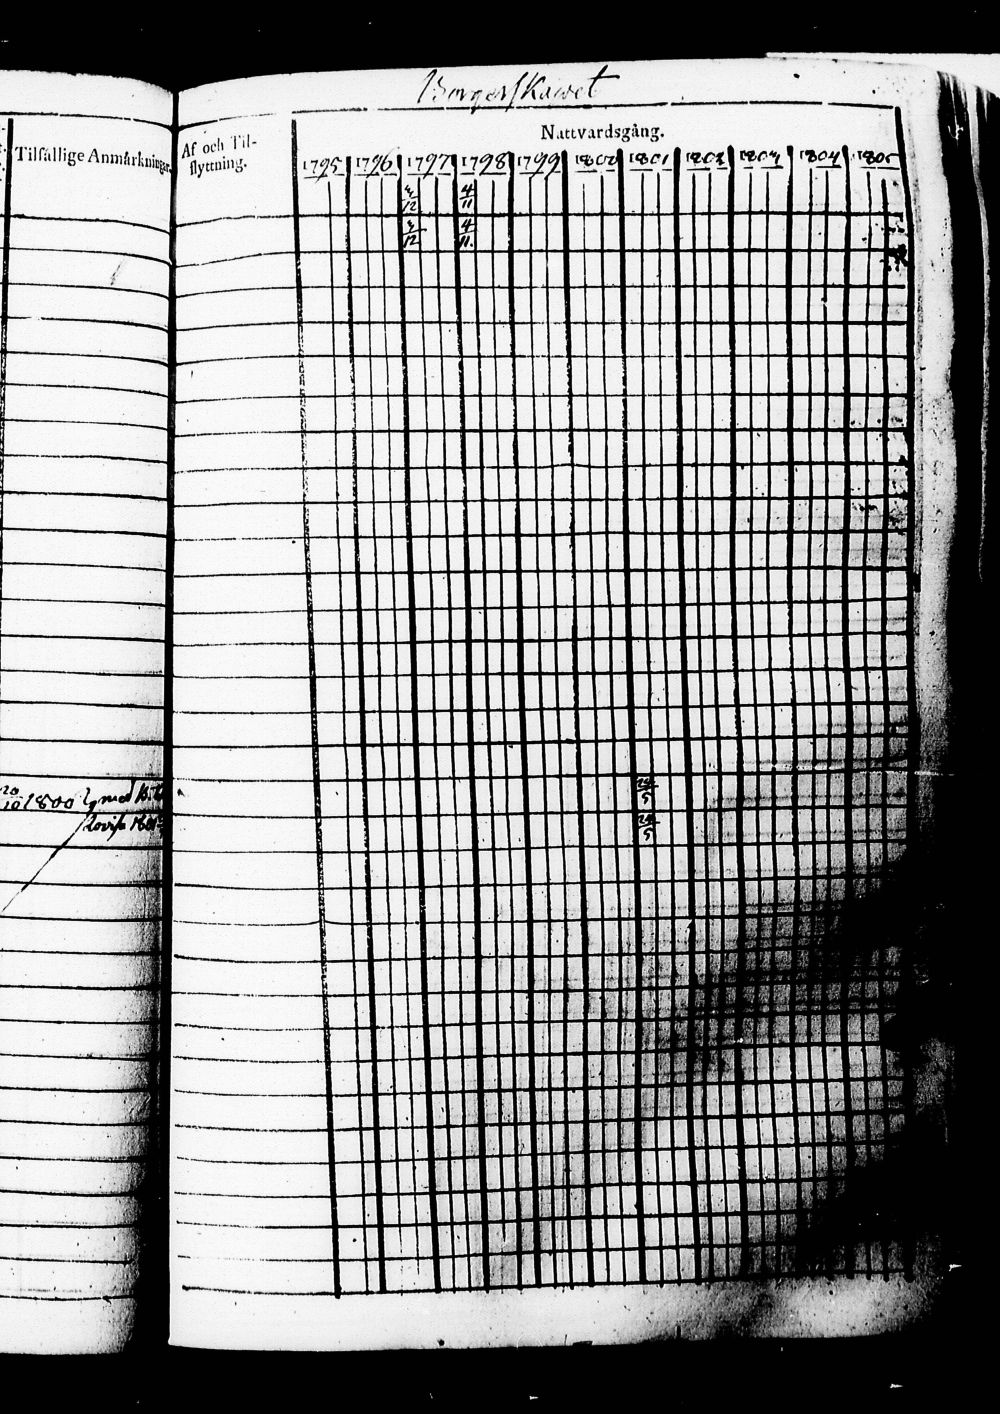 Borgerskawet
Tilfällige Anmärkningar.
Af och Til-
flyttning.
Nattvardsgång.
1795 1796 1797 1798 1799 1800 1801 1802 1803 1804 1805
3/12 4/11
3/12 4/11
20/10 1800 med
24/5
Lovisa
24/5